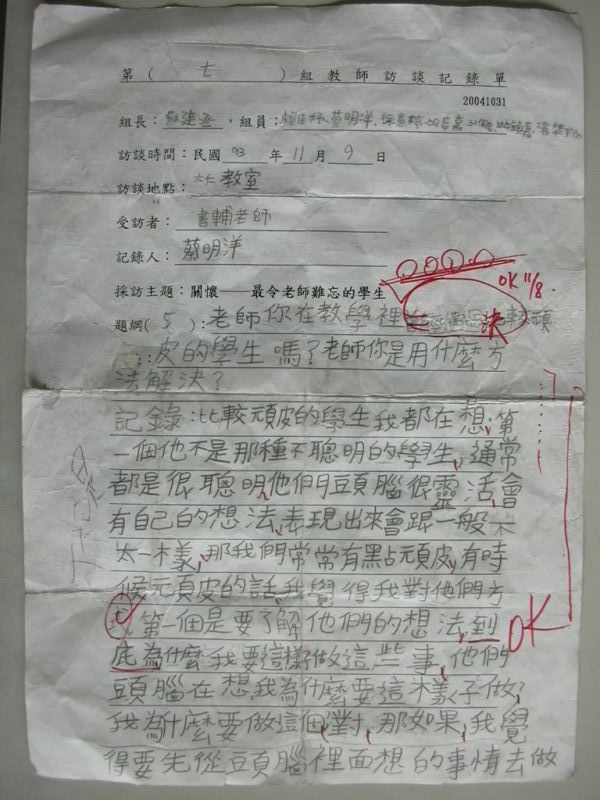 第（ 七 ）組教師訪談記錄單
20041031
組長：蘇建丞，組員：蔡明洋、
訪談時間：民國 93 年 11 月 9 日
訪談地點：六七教室
受訪者：書輔老師
記錄人：蔡明洋
採訪主題：關懷——最令老師難忘的學生
OK 11/8.
題網（ 5 ）：老師你在教學裡 較頑
皮的學生嗎？老師你是用什麼方
法解決？
記錄：比較頑皮的學生我都在想，第
一個他不是那種不聰明的學生，通常
都是很聰明，他們頭腦很靈活，會
有自己的想法，表現出來會跟一般不
太一樣，那我們常常有點頑皮，有時
候頑皮的話，我覺得我對他們方
式第一個是要了解他們的想法，到
底為什麼我要這樣子做這些事，他們
頭腦在想，我為什麼要這樣子做？
我為什麼要做這個，對，那如果，我覺
得要先從頭腦裡面想的事情去做
OK